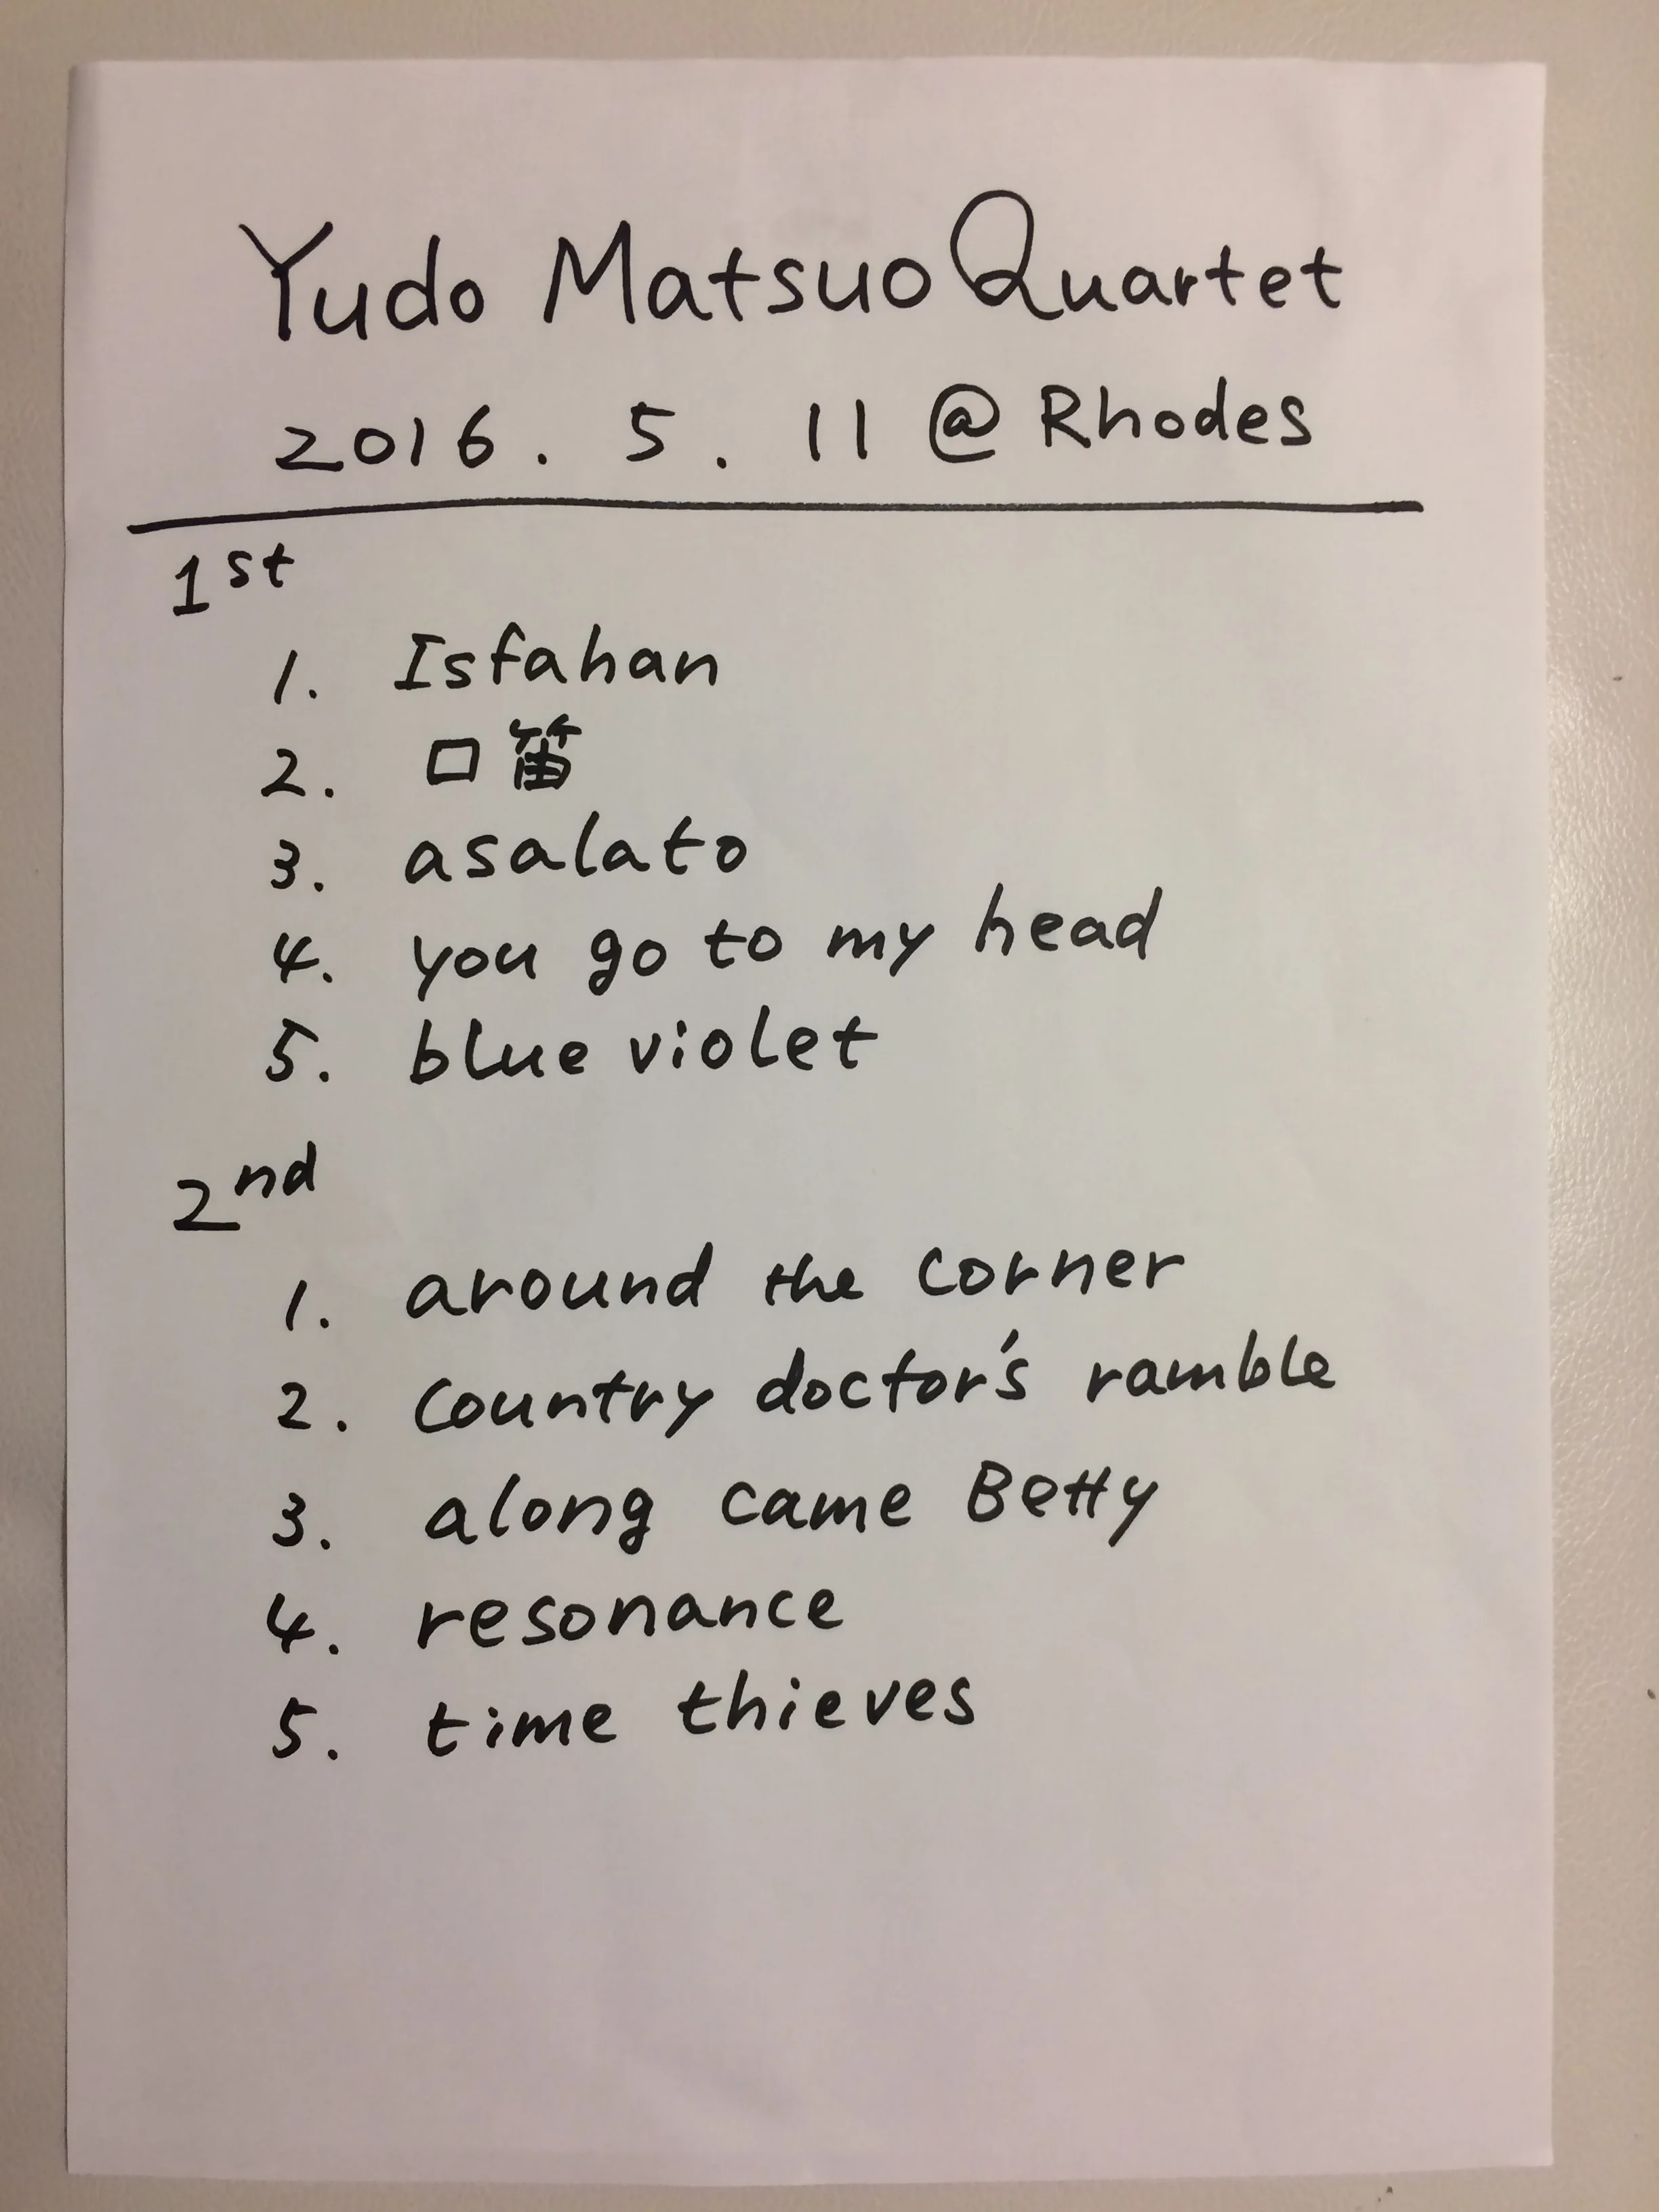 Yudo Matsuo Quartet
2016. 5. 11 @ Rhodes
1st
1. Isfahan
2. 口笛
3. asalato
4. you go to my head
5. blue violet
2nd
1. around the corner
2. country doctor's ramble
3. along came Betty
4. resonance
5. time thieves